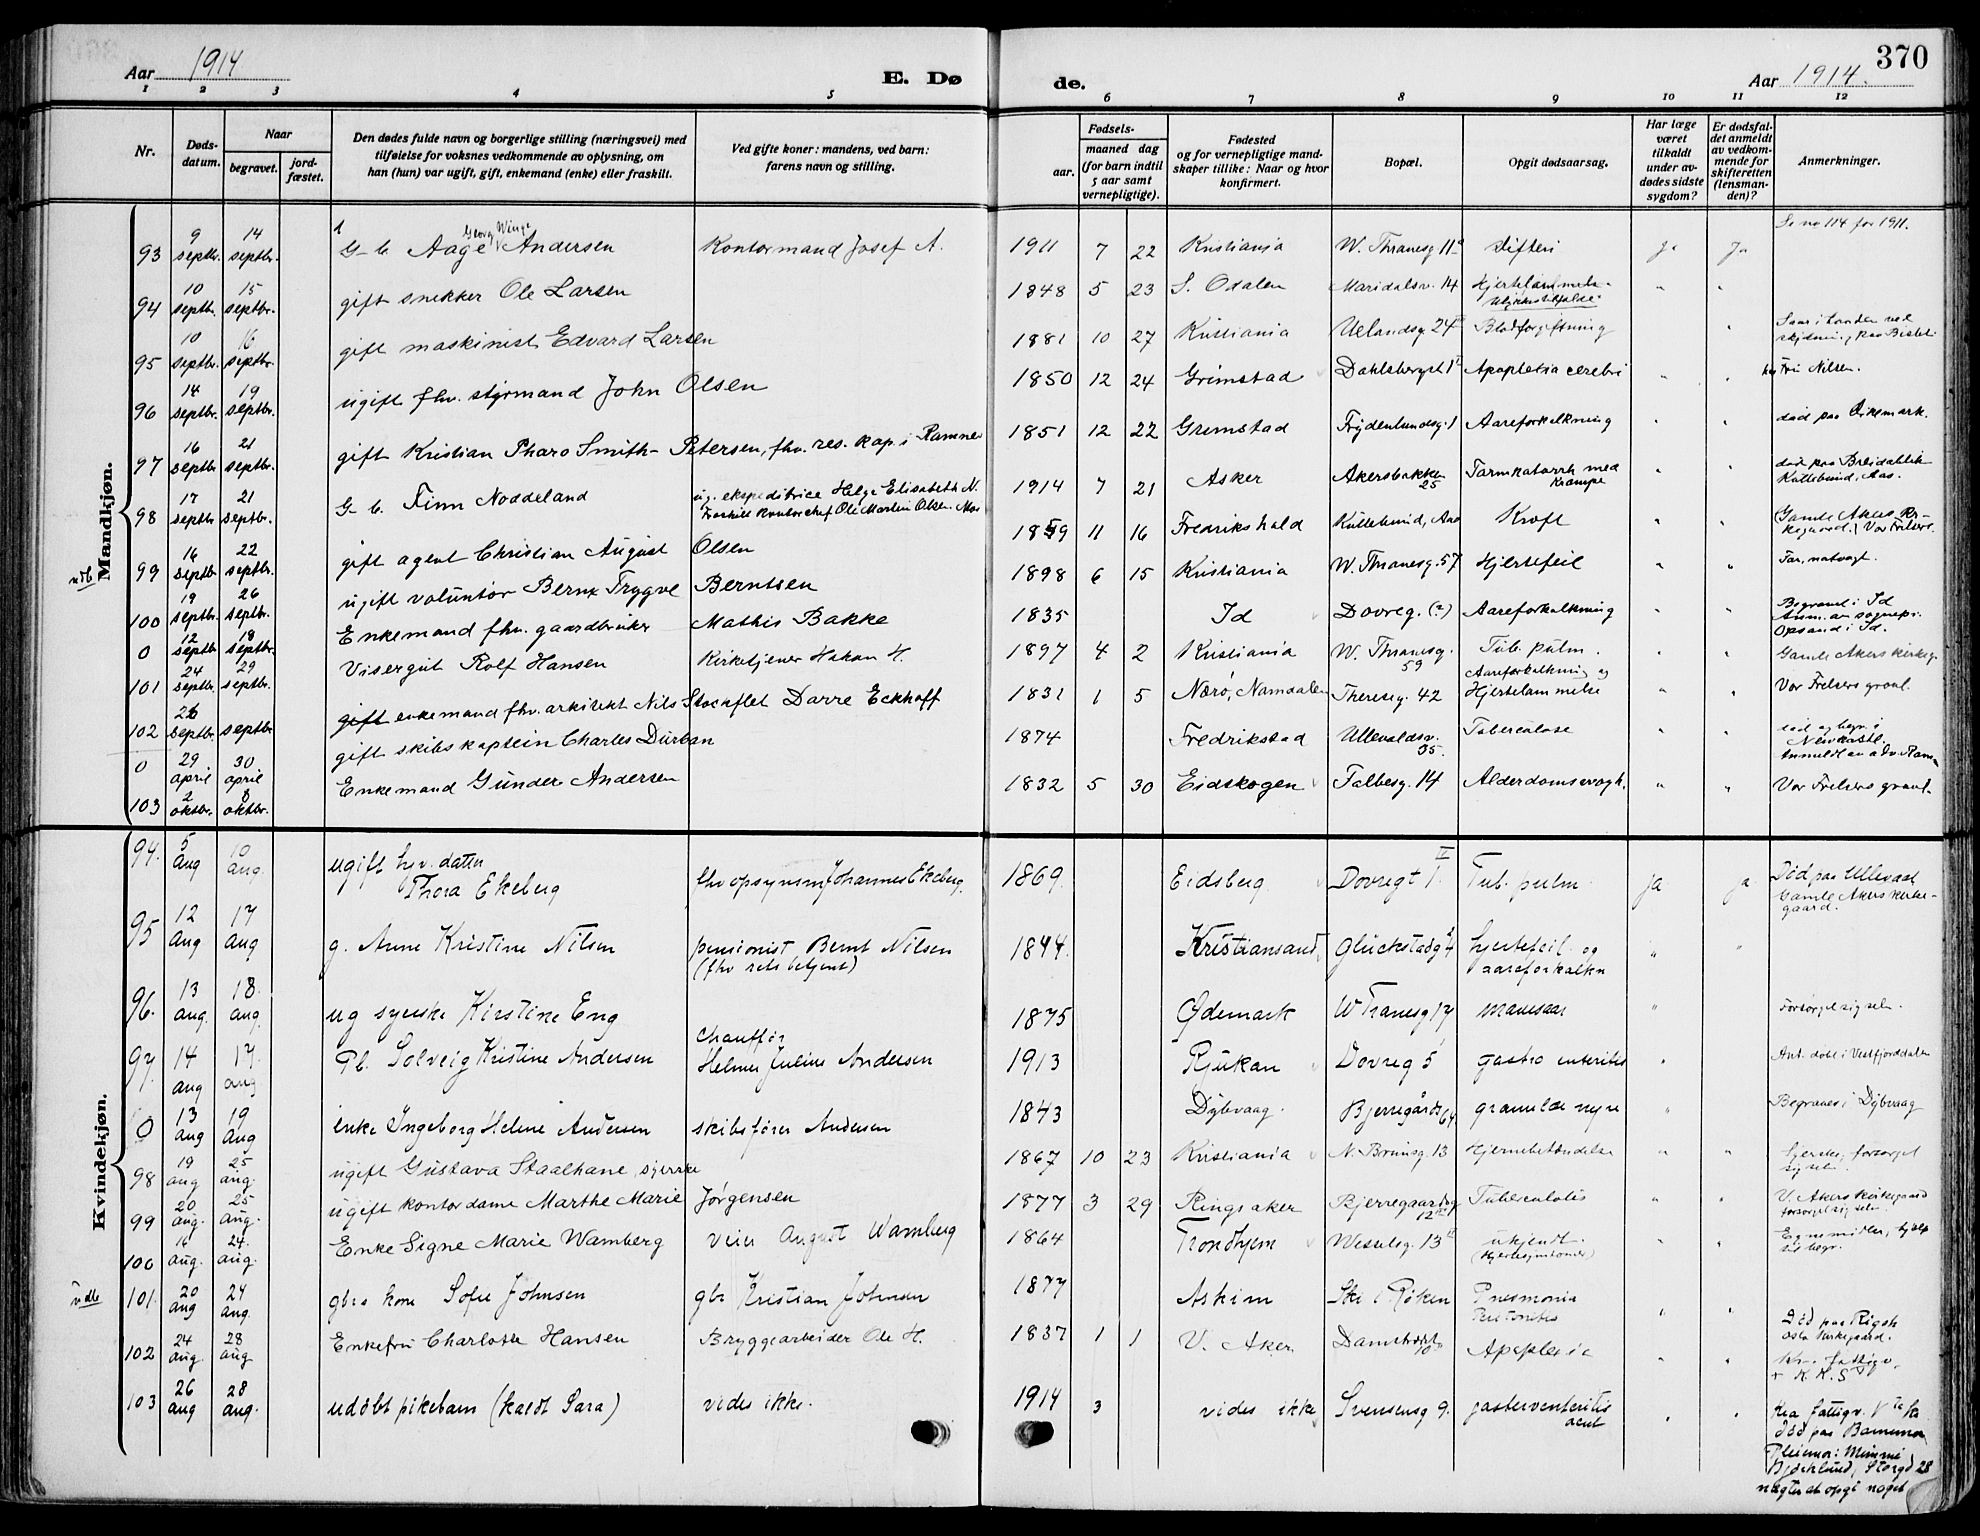 Aar 1914
E. Dø
de.
Aar 1914.
370
1 2 3 4 5 6 7 8 9 10 11 12
Nr.
Døds-
datum.
Naar
begravet.
jord-
fæstet.
Den dødes fulde navn og borgerlige stilling (næringsvei) med
tilføielse for voksnes vedkommende av oplysning, om
han (hun) var ugift, gift, enkemand (enke) eller fraskilt.
Ved gifte koner: mandens, ved barn:
farens navn og stilling.
Fødsels-
aar.
maaned dag
(for barn indtil
5 aar samt
vernepligtige).
Fødested
og for vernepligtige mand-
skaper tillike: Naar og hvor
konfirmert.
Bopæl.
Opgit dødsaarsag.
Har læge
været
tilkaldt
under av-
dødes sidste
sygdom?
Er dødsfal-
det anmeldt
av vedkom-
mende for
skifteretten
(lensman-
den)?
Anmerkninger.
Mandkjøn.
93 9 septbr. 14 septbr. G. b. Aage Georg Winge Andersen Kontormand Josef A. 1911 7 22 Kristiania W. Thranesg. 11a Difteri ja Ja Se no 114 for 1911.
94 10 septbr. 15 septbr. gift snekker Ole Larsen 1848 5 23 S. Odalen Maridalsv. 14 Hjertelammelse
95 10 septbr. 16 septbr. gift maskinist Edvard Larsen 1881 10 27 Kristiania Uelandsg. 24 Blodforgiftning
96 14 septbr. 19 septbr. ugift fhv. styrmand John Olsen 1850 12 24 Grimstad Dahlsbergst. 1 Apoplexia cerebri Nilsen.
97 16 septbr. 21 septbr. gift Kristian Pharo Smith-Petersen, fhv. res. kap. i Ramnes 1851 12 22 Grimstad Frydenlundsg. 1 Aareforkalkning død paa Dikemark.
98 17 septbr. 21 septbr. G. b. Finn Noddeland ug. ekspeditrice Helga Elisabeth N. Fraskilt kontorchef Ole Martin Olsen Mos 1914 7 21 Asker Akersbakken 25 Tarmkatarrh med krampe
udb 99 16 septbr. 22 septbr. gift agent Christian August Olsen 1859 11 16 Fredrikshald Kullebund, Aas Kræft død paa Breidablik Kullebund, Aas.
100 19 septbr. 26 septbr. ugift volontør Bernt Trygve Berntsen 1898 6 15 Kristiania W. Thranesg. 57 Hjertefeil Gamle Akers Kirkegaard. Vor Frelsers.
0 12 septbr. 18 septbr. Enkemand fhv. gaardbruker Mathis Bakke 1835 Id Dovreg. (?) Aareforkalkning Begravet i Id Anm. av sognepr. Opsand i Id.
101 24 septbr. 29 septbr. Visergut Rolf Hansen Kirketjener Hakon H. 1897 4 2 Kristiania W. Thranesg. 59 Tub. pulm. Gamle Akers kirkeg.
102 26 septbr. septbr. gift enkemand fhv. arkitekt Nils Stockflet Darre Eckhoff 1831 1 5 Nærø, Namdalen Theresesg. 42 Aareforkalkning og Hjertelammelse Vor Frelsers gravl.
0 29 april 30 april gift skibskaptein Charles Durban 1874 Fredrikstad Ullevaldsv. 35. Tuberculose
103 2 oktbr. 8 oktbr. Enkemand Gunder Andersen 1832 5 30 Eidskogen Falbesg. 14 Alderdomssvagh. Vor Frelsers gravl.
Kvindekjøn.
94. 5 Aug 10 aug. ugift hv. datter Thora Ekeberg fhv opsynsm Johannes Ekeberg. 1869. Eidsberg Dovregt 1. Tub. pulm. ja ja Død paa Ullevaal Gamle Akers kirke-gaard.
95 12 Aug 17 aug g. Anne Kristine Nilsen pensionist Bernt Nilsen (fhv retsbetjent) 1844. Kristiansand Glückstadg 4 hjertefeil og aareforkalkn
96. 13 aug. 18. aug. ug syerske Kirstine Eng 1875 Ødemark W Tranesg 17 mavesaar
97. 14 aug 17. aug Pb. Solveig Kristine Andersen Chauffør Helmer Julius Andersen 1913 Rjukan Dovreg 5 gastro enteritis Ant. døbt i Vestfjorddalen
0 13 aug 19 aug enke Ingeborg Helene Andersen skibsfører Andersen 1843 Dybvaag. Bjerregårds 64 granulde nyre Begraves i Dybvaag
98 19 aug 25 aug. ugift Gustava Staalhane, syerske 1867 10 23 Kristiania N. Brunsg. 13 Hjernebetændelse
99 20 aug. 25 aug. ugift kontordame Marthe Marie Jørgensen 1877 3 29 Ringsaker Bjerregaardsg 12 Tuberculosis V. Akers kirkegaard
100 16 aug. 24. aug. Enke Signe Marie Wamberg August Wamberg 1864 Trondhjem Wesselsg. 13 ukjendt. (hjertesymtomer)
101. 20 aug 24 aug. gbrs kone Sofie Johnsen gbr Kristian Johnsen 1877 Askim Ski i Røken Pnesmonia Peritonitis Død paa Rigsh Oslo kirkegaard.
102 24 aug. 28 aug Enkefru Charlotte Hansen Bryggearbeider Ole H. 1837 1 1 V. Aker Apoplexia
103 26 aug 28 aug. udøbt pikebarn (kaldt Sara) vides ikke. 1914 3 vides ikke Svensensg 9. gasterventeritis acut Kra fattigv. død paa Pleiemor: Mimmi Bjørklund, Storgd 28 nægter at opgi noget